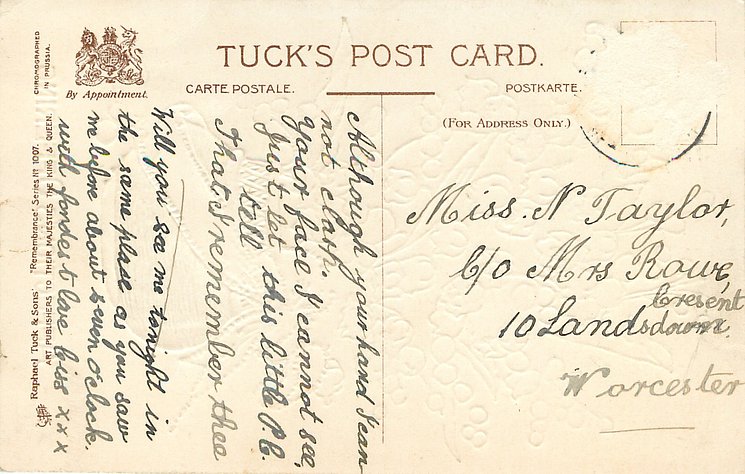 TUCK'S POST CARD.
CARTE POSTALE.
POSTKARTE.
(FOR ADDRESS ONLY.)
By Appointment.
CHROMOGRAPHED
IN PRUSSIA.
Raphael Tuck & Sons' "Remembrance" Series No 1007.
ART PUBLISHERS TO THEIR MAJESTIES THE KING & QUEEN.
Although your hand I can
not clasp.
Your face I cannot see,
Just let this little P.C.
tell
That I remember thee
Will you see me tonight in
the same place as you saw
me before about seven o'clock.
with fondest love Ciss x x x
Miss. N Taylor,
C/o Mrs Rowe,
10 Landsdown
Cresent
Worcester